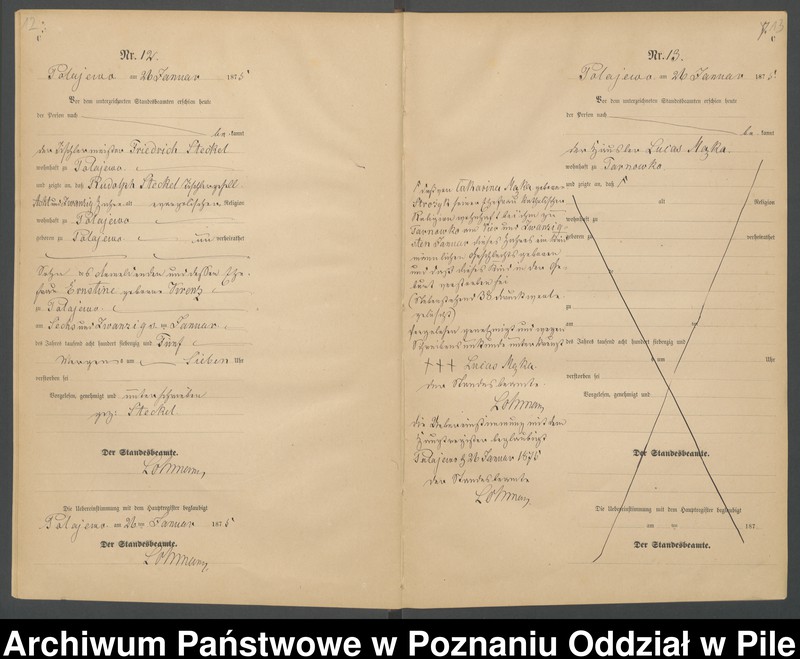 12.
C
Nr. 12.
Polajewo am 26 Januar 1875
Vor dem unterzeichneten Standesbeamten erschien heute
der Person nach
be kannt
der Tischlermeister Friedrich Steckel
wohnhaft zu Polajewo
und zeigte an, daß Rudolph Steckel Tischlergesell
Acht und Zwanzig Jahre alt evangelischer Religion
wohnhaft zu Polajewo
geboren zu Polajewo un verheirathet
Sohn des Anmeldenden und dessen Ehe-
frau Ernstine geborne
zu Polajewo
am Sechs und Zwanzigsten Januar
des Jahres tausend acht hundert siebenzig und Fünf
Morgens um Sieben Uhr
verstorben sei
Vorgelesen, genehmigt und unterschrieben
gez: Steckel
Der Standesbeamte.
Lohmann
Die Uebereinstimmung mit dem Hauptregister beglaubigt
Polajewo am 26ten Januar 1875
Der Standesbeamte.
Lohmann
13
C
Nr. 13.
Polajewo am 26 Januar 1875
Vor dem unterzeichneten Standesbeamten erschien heute
der Person nach
be kannt
der Häusler Lucas Mąka
wohnhaft zu Tarnowko
und zeigte an, daß
alt Religion
wohnhaft zu
geboren zu verheirathet
zu
am
des Jahres tausend acht hundert siebenzig und
um Uhr
verstorben sei
Vorgelesen, genehmigt und
Der Standesbeamte.
Die Uebereinstimmung mit dem Hauptregister beglaubigt
am 187
Der Standesbeamte.
daß von Catharina Mąka geborne
seiner Ehefrau katholischer
Religion wohnhaft bei ihm zu
Tarnowko am Vier und Zwanzig-
sten Januar dieses Jahres ein Kind
männlichen Geschlechts geboren
und daß dieses Kind in der Ge-
burt verstorben sei
(Nebenstehend 38 Druckworte
gelöscht)
Vorgelesen genehmigt und wegen
Schreibensunkunde unterkreuzt
+++ Lucas Mąka
Der Standesbeamte.
Lohmann
Die Uebereinstimmung mit dem
Hauptregister beglaubigt
Polajewo d 26 Januar 1875
Der Standesbeamte
Lohmann
Archiwum Państwowe w Poznaniu Oddział w Pile